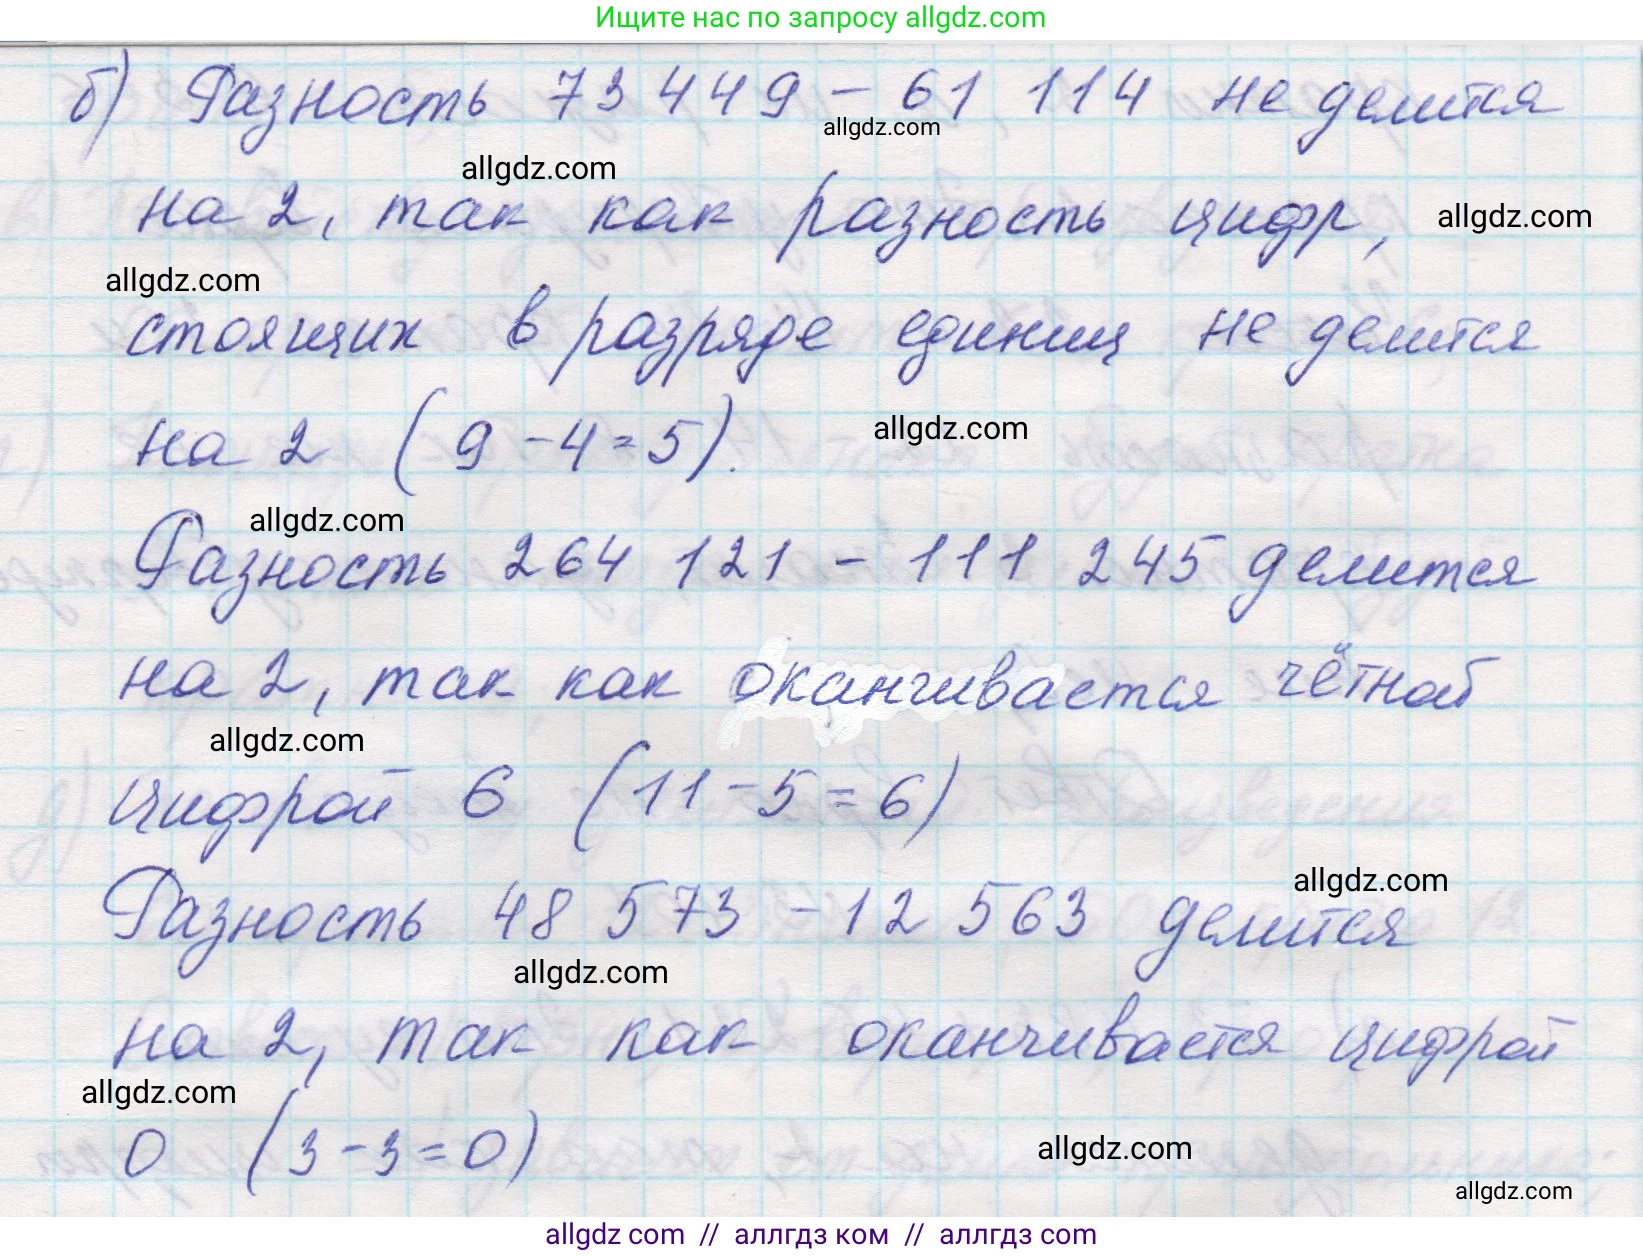 Ищите нас по запросу allgdz.com
б) Разность 73 449 - 61 114 не делится
allgdz.com
allgdz.com
на 2, так как разность цифр,
allgdz.com
allgdz.com
стоящих в разряде единиц не делится
на 2 (9 - 4 = 5).
allgdz.com
allgdz.com
Разность 264 121 - 111 245 делится
на 2, так как оканчивается чётной
allgdz.com
цифрой 6 (11 - 5 = 6)
allgdz.com
Разность 48 573 - 12 563 делится
allgdz.com
на 2, так как оканчивается цифрой
allgdz.com
0 (3 - 3 = 0)
allgdz.com
allgdz.com
allgdz com // аллгдз ком // аллгдз com